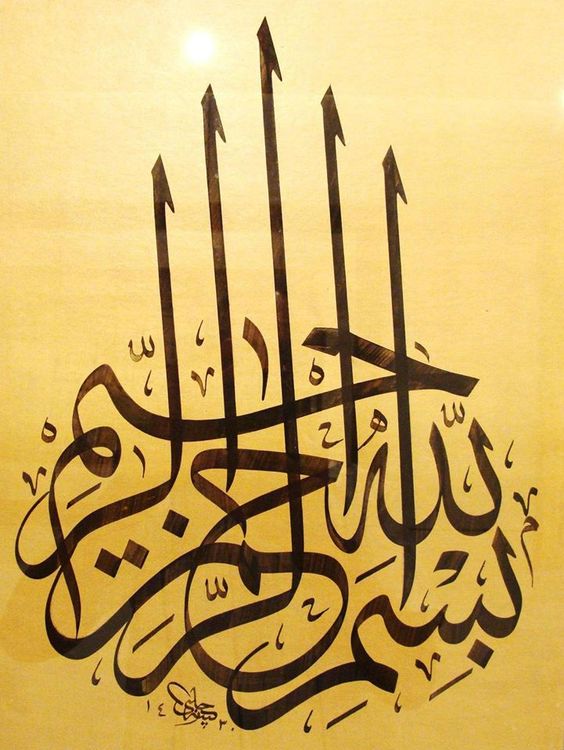 بِسْمِ اللّٰهِ الرَّحْمٰنِ الرَّحِيمِ
١٤٣٠